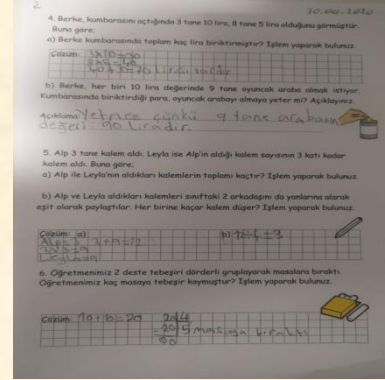 2
30.04.2020
4. Berke, kumbarasını açtığında 3 tane 10 lira, 8 tane 5 lira olduğunu görmüştür.
Buna göre;
a) Berke kumbarasında toplam kaç lira biriktirmiştir? İşlem yaparak bulunuz.
Çözüm: 3x10=30
8x5=40
40+30=70 lirası vardır
b) Berke, her biri 10 lira değerinde 9 tane oyuncak araba almak istiyor.
Kumbarasında biriktirdiği para, oyuncak arabayı almaya yeter mi? Açıklayınız.
Açıklama: Yetmez çünkü 9 tane arabanın
değeri 90 liradır.
5. Alp 3 tane kalem aldı. Leyla ise Alp'in aldığı kalem sayısının 3 katı kadar
kalem aldı. Buna göre;
a) Alp ile Leyla'nın aldıkları kalemlerin toplamı kaçtır? İşlem yaparak bulunuz.
b) Alp ve Leyla aldıkları kalemleri sınıftaki 2 arkadaşını da yanlarına alarak
eşit olarak paylaştılar. Her birine kaçar kalem düşer? İşlem yaparak bulunuz.
Çözüm: a) b) 12÷4=3
Alp=3 3+9=12
3x3=9
Leyla=9
6. Öğretmenimiz 2 deste tebeşiri dörderli gruplayarak masalara bıraktı.
Öğretmenimiz kaç masaya tebeşir koymuştur? İşlem yaparak bulunuz.
Çözüm: 10+10=20 20 4
-20 5 masaya bıraktı
00